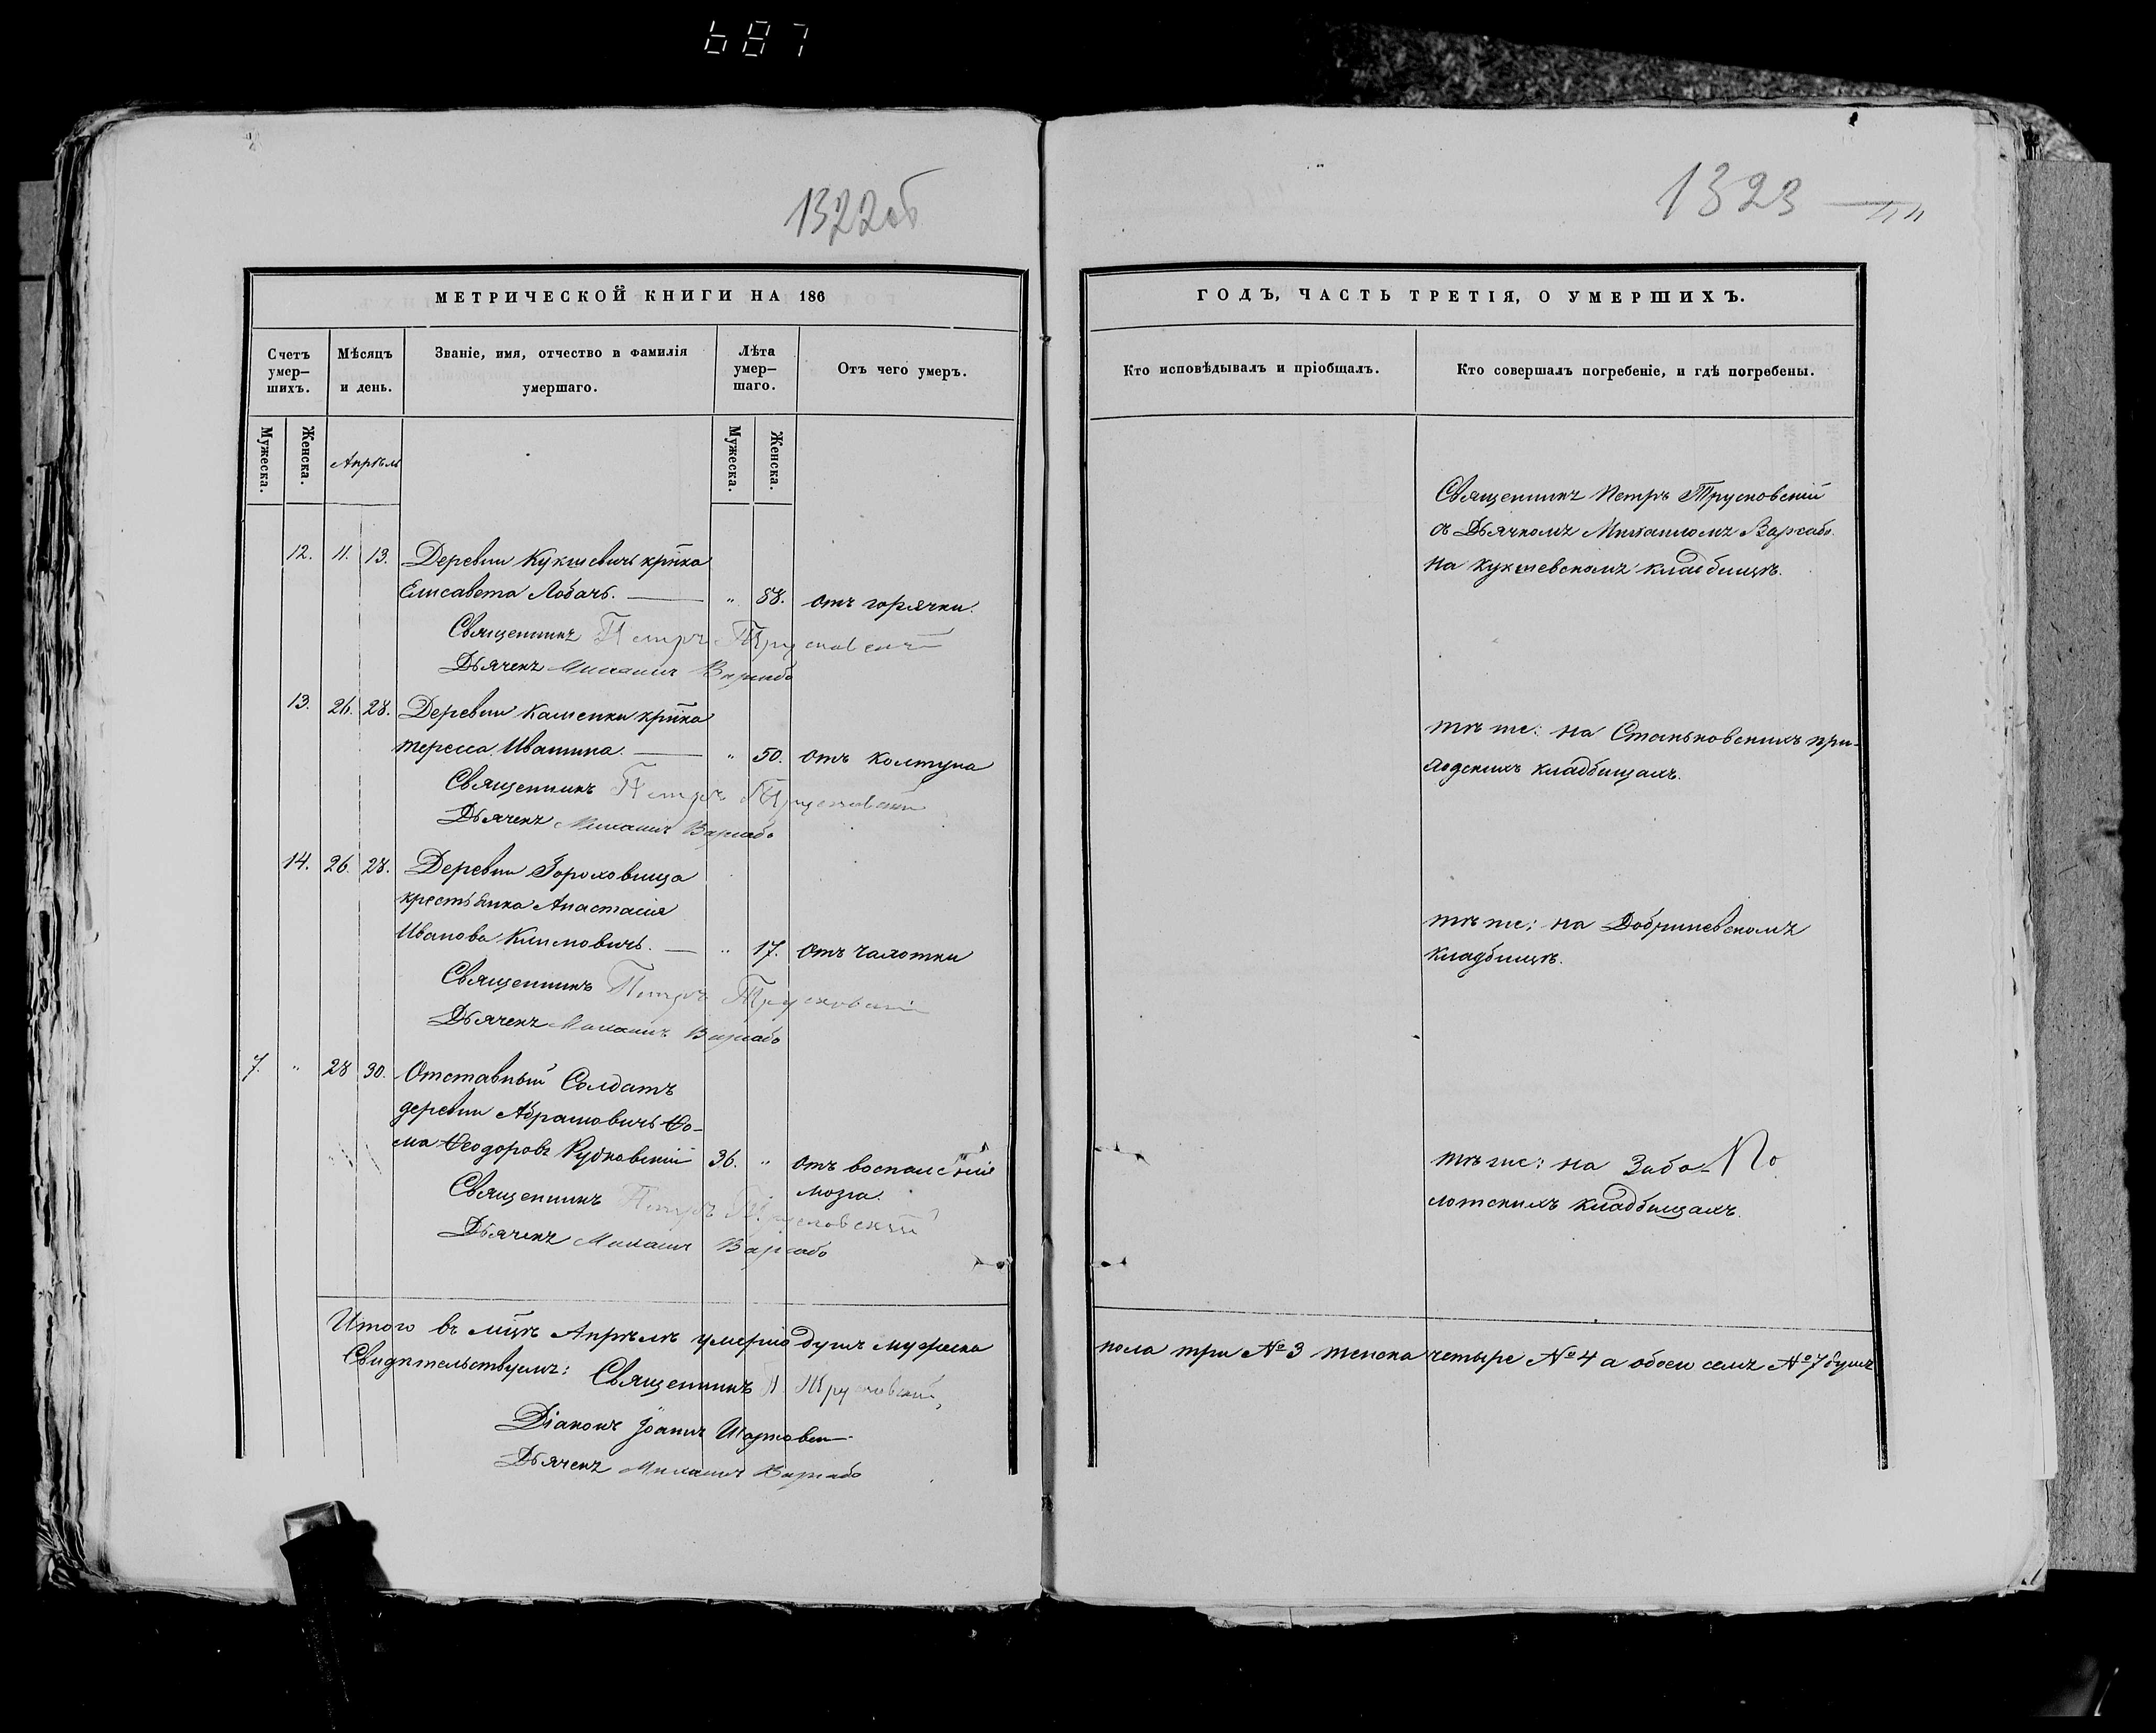 687
1322об
1323
МЕТРИЧЕСКОЙ КНИГИ НА 186
Счетъ умер-шихъ.
Мѣсяцъ и день.
Званіе, имя, отчество и фамилія умершаго.
Лѣта умер-шаго.
Отъ чего умеръ.
Мужеска.
Женска.
Апрѣль
Мужеска.
Женска.
12. 11. 13. Деревни Кукшевичь кр̃нка
Елисавета Лобачъ. — " 58. отъ горячки.
Священникъ Петръ Трусковскій
Дьячекъ Михаилъ Варжабо
13. 26. 28. Деревни Каменки кр̃нка
Тересса Ивашина. — " 50. отъ колтуна
Священникъ Петръ Трусковскій
Дьячекъ Михаилъ Варжабо
14. 26. 28. Деревни Гороховища
крестьянка Анастасія
Иванова Климовичь. — " 17. отъ чахотки
Священникъ Петръ Трусковскій
Дьячекъ Михаилъ Варжабо
7. " 28 30. Отставный Солдатъ
деревни Абрамовичь Ѳо-
ма Ѳеодоровъ Рудковскій 36. " отъ воспаленія
мозга.
Священникъ Петръ Трусковскій
Дьячекъ Михаилъ Варжабо
Итого въ мц̃ѣ Апрѣлѣ умерло душъ мужеска
Свидѣтельствуемъ: Священникъ П. Трусковскій,
Діаконъ Іоаннъ
Дьячекъ Михаилъ Варжабо
ГОДЪ, ЧАСТЬ ТРЕТІЯ, О УМЕРШИХЪ.
Кто исповѣдывалъ и пріобщалъ.
Кто совершалъ погребеніе, и гдѣ погребены.
Священникъ Петръ Трусковскій
съ Дьячкомъ Михаиломъ Варжабо.
на Кукшевскомъ кладбищѣ.
тѣ же: на Станьковскихъ при-
ходскихъ кладбищахъ.
тѣ же: на Добриневскомъ
кладбищѣ.
тѣ же: на Забо-
лотскихъ кладбищахъ.
пола три №3 женска четыре №4 а обоего семь №7 душъ